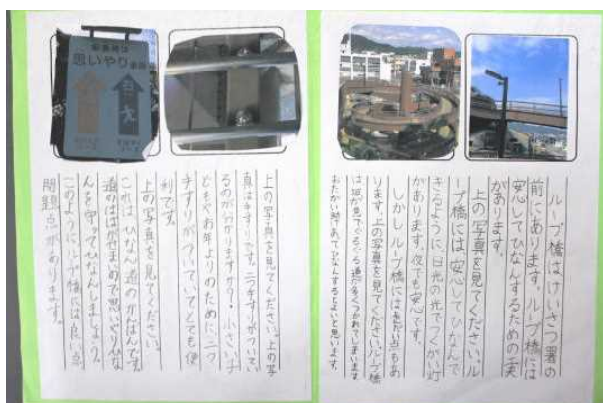 ループ橋はけいさつ署の
前にあります。ループ橋には
安心してひなんするための工夫
があります。
上の写真を見てください。ル
ープ橋には安心してひなんで
きるように、日光の光でつくがい灯
があります。夜でも安心です。
しかしループ橋には点もあ
ります。上の写真を見てください。ループ橋
はぐるぐる道が多くつかれてしまいます
てひなんするとよいと思います。
思いやり
上の写真を見てください。上の写
真は手すりです。二つ手すりがついてい
るのが分かりますか?小さい子
どもやお年よりのために、二つ
手すりがついていてとても便
利です。
上の写真を見てください。
これは、ひなん道のかんばんです。
道のはばがせまめで思いやりひな
んを守ってひなんしましょう。
このようにループ橋には良い点
問題点があります。